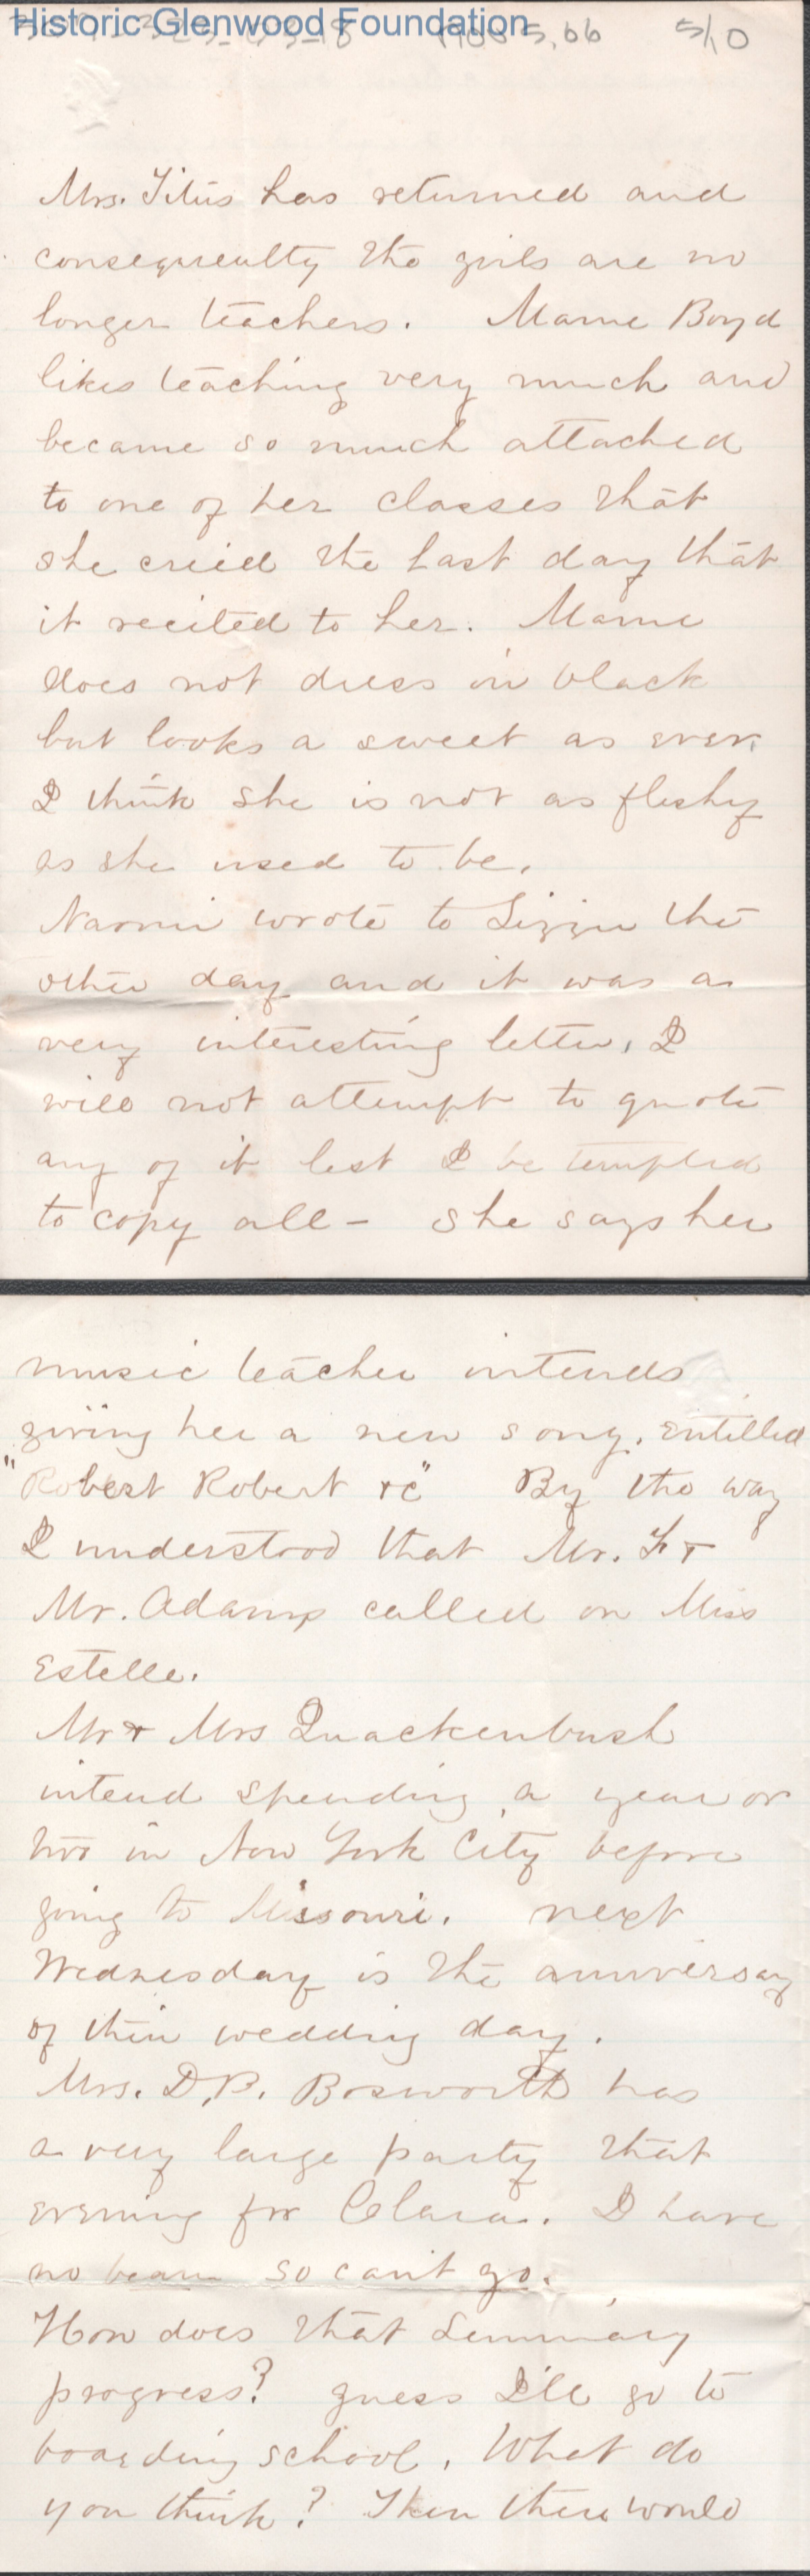 Historic Glenwood Foundation
5/10
Mrs. Titus has returned and
consequently the girls are no
longer teachers. Mame Boyd
likes teaching very much and
became so much attached
to one of her classes that
she cried the last day that
it recited to her. Mame
does not dress in black
but looks a sweet as ever.
I think she is not as fleshy
as she used to be.
Naomi wrote to Lizzie the
other day and it was a
very interesting letter, I
will not attempt to quote
any of it lest I be tempted
to copy all - She says her
music teacher intends
giving her a new song, entitled
"Robert Robert &c" By the way
I understood that Mr. F &
Mr. Adams called on Miss
Estelle.
Mr & Mrs Quackenbush
intend spending a year or
two in New York City before
going to Missouri. next
Wednesday is the anniversay
of their wedding day.
Mrs. D.B. Bosworth has
a very large party that
evening for Clara. I have
no beau so can't go.
How does that Seminary
progress? guess I'll go to
boarding school. What do
you think? Then there would